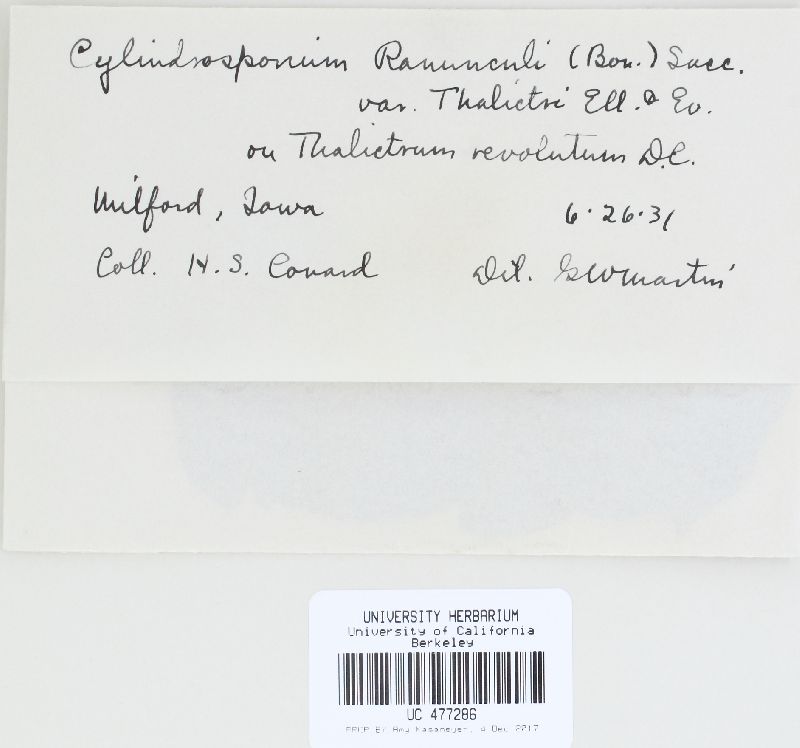 Cylindrosporium Ranunculi (Bon.) Sacc.
var. Thalictri Ell. & Ev.
on Thalictrum revolutum D.C.
Milford, Iowa 6.26.31
Coll. H.S. Conard Det. GWMartin
UNIVERSITY HERBARIUM
University of California
Berkeley
UC 477286
PREP BY Amy Kasameyer, 4 Dec 2017